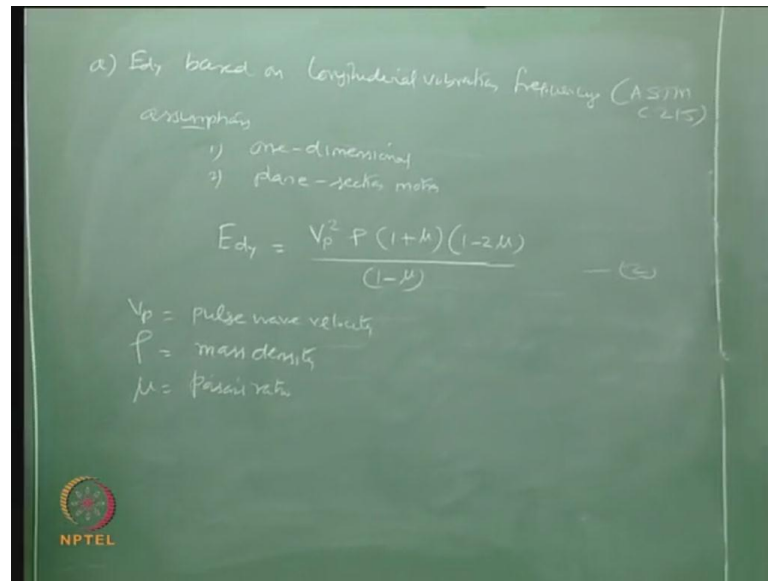 a) Edy based on longitudinal vibration frequency (ASTM
C 215)
assumption
1) one-dimensional
2) plane-section motion
Edy = Vp² ρ (1+μ)(1-2μ)
(1-μ)
Vp = pulse wave velocity
ρ = mass density
μ = poisson ratio
NPTEL